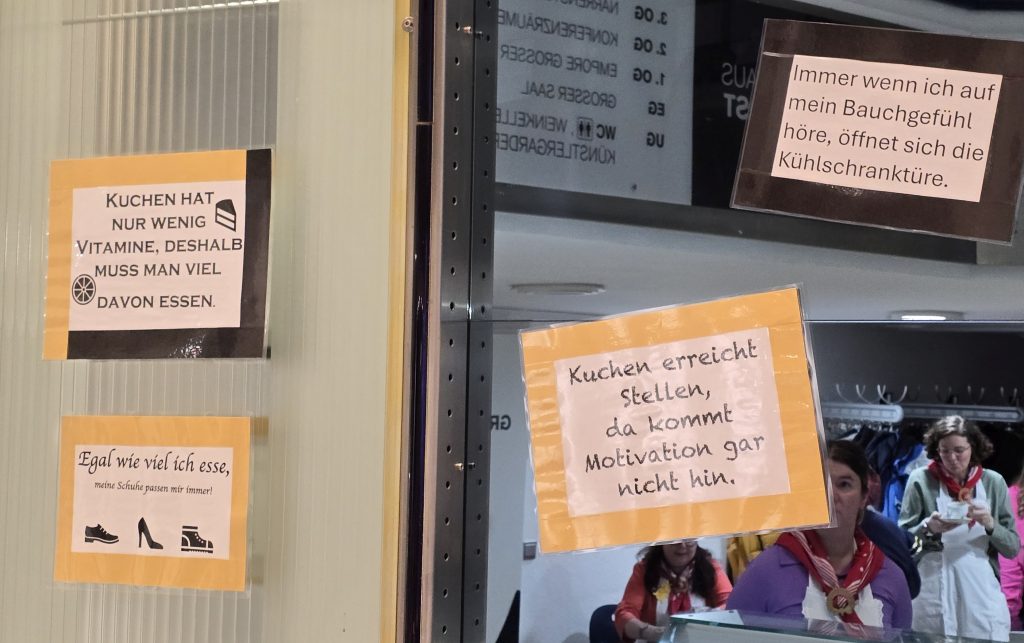 KUCHEN HAT
NUR WENIG
VITAMINE, DESHALB
MUSS MAN VIEL
DAVON ESSEN.
Egal wie viel ich esse,
meine Schuhe passen mir immer!
3. OG
KONFERENZRÄUME
2. OG
EMPORE GROSSER
1. OG
GROSSER SAAL
EG
WC, WEINKELLE
KÜNSTLERGARDER
UG
AUS
ST
Immer wenn ich auf
mein Bauchgefühl
höre, öffnet sich die
Kühlschranktüre.
Kuchen erreicht
Stellen,
da kommt
Motivation gar
nicht hin.